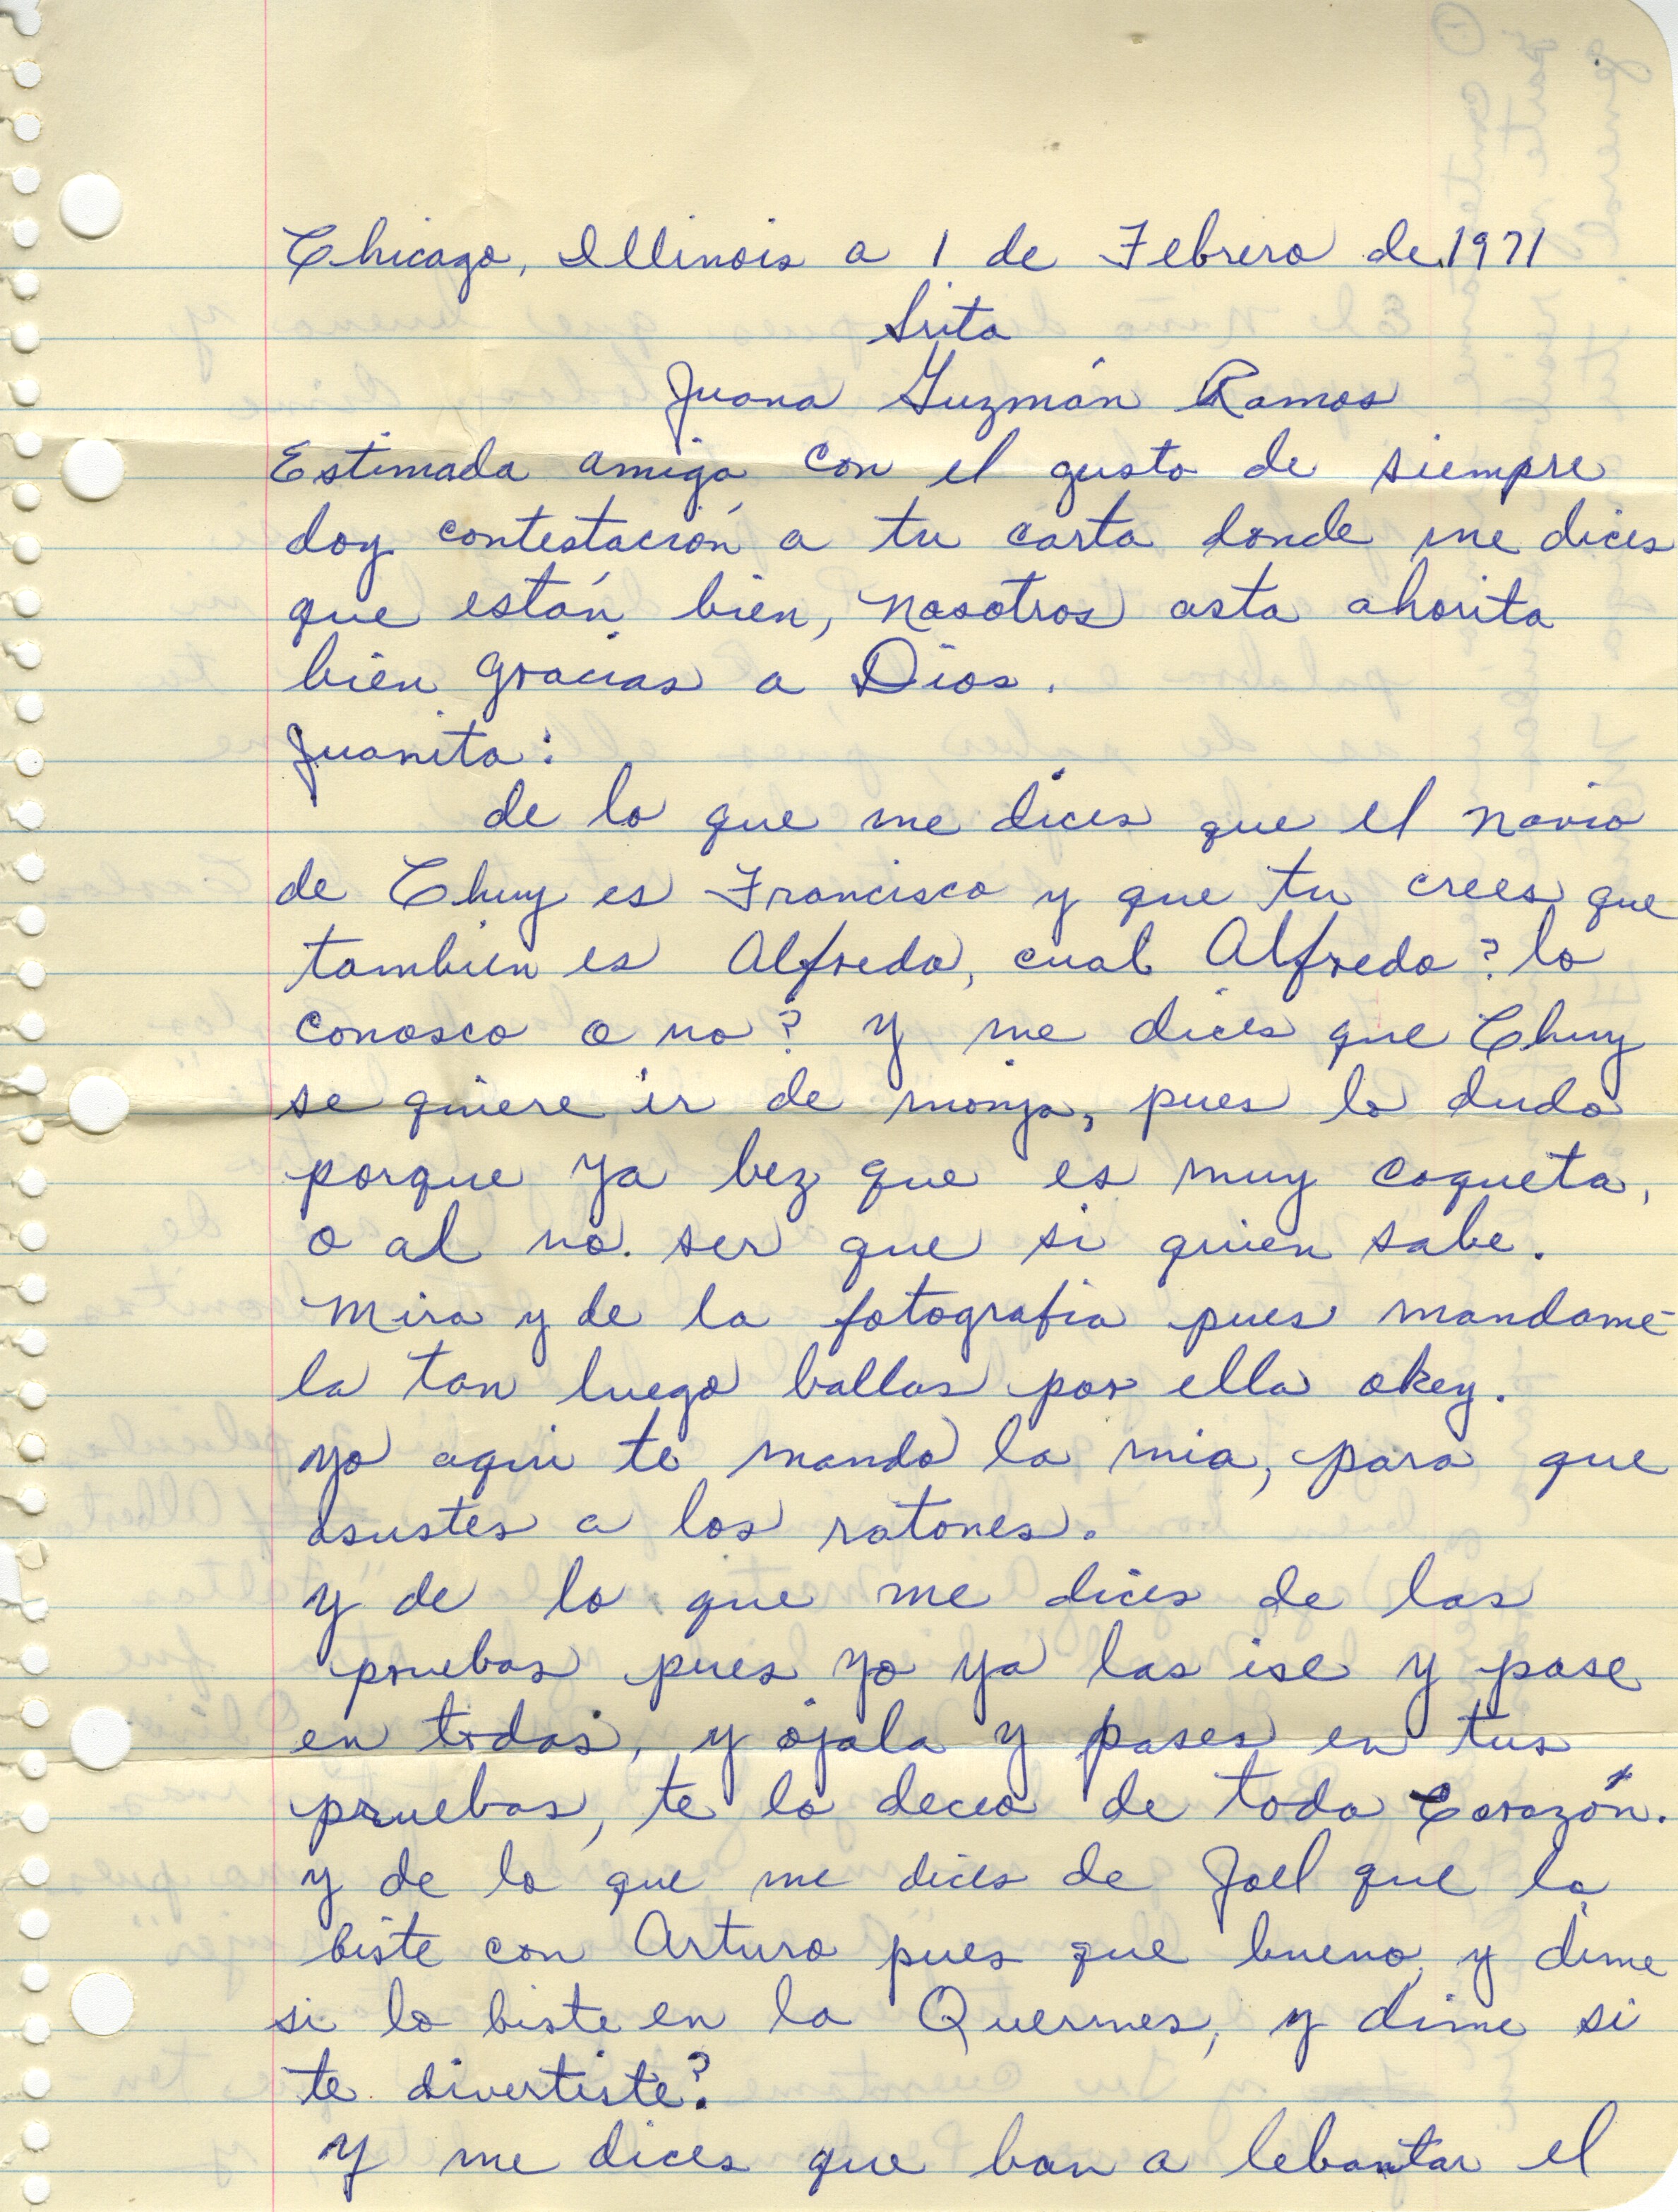 Chicago, Illinois a 1 de Febrero de 1971
Srita
Juana Guzmán Ramos
Estimada amiga con el gusto de siempre
doy contestación a tu carta donde me dices
que están bien, nosotros asta ahorita
bien gracias a Dios.
Juanita:
de lo que me dices que el novio
de Chuy es Francisco y que tu crees que
tambien es Alfredo, cual Alfredo? lo
conosco o no? y me dices que Chuy
se quiere ir de monja, pues lo dudo
porque ya bez que es muy coqueta,
o al no ser que si quien sabe.
Mira y de la fotografia pues mandame-
la tan luego ballas por ella okey.
yo aqui te mando la mia, para que
asustes a los ratones.
y de lo que me dices de las
pruebas pues yo ya las ise y pase
en todas, y ojala y pases en tus
pruebas, te lo deceo de todo Corazón.
y de lo que me dices de Joel que lo
biste con Arturo pues que bueno, y dime
si lo biste en la Quermes, y dime si
te divertiste?
Y me dices que ban a lebantar el